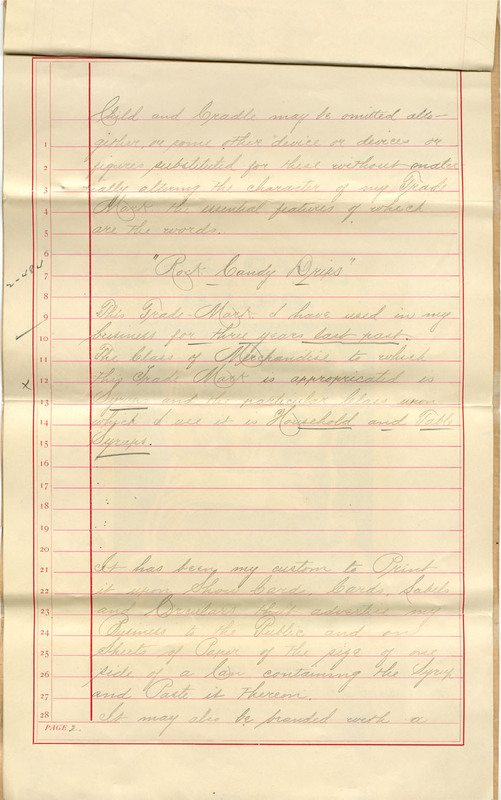 Child and Cradle may be omitted alto-
gether, or some other device or devices or
figures substituted for these without mater
ially altering the character of my Trade
Mark the essential features of which
are the words.
"Rock Candy Drips"
This Trade-Mark I have used in my
business for three years last past.
The Class of Merchandise to which
this Trade Mark is appropricated is
Syrup and the particular Class upon
which I use it is Household and Table
Syrups.
It has been my custom to Print
it upon Show Card, Cards, Labels
and Circulars that advertise my
Business to the Public and on
Sheets of Paper of the size of one
side of a can containing the Syrup
and Paste it thereon.
It may also be branded with a
1
2
3
4
5
6
7
8
9
10
11
12
13
14
15
16
17
18
19
20
21
22
23
24
25
26
27
28
PAGE 2.